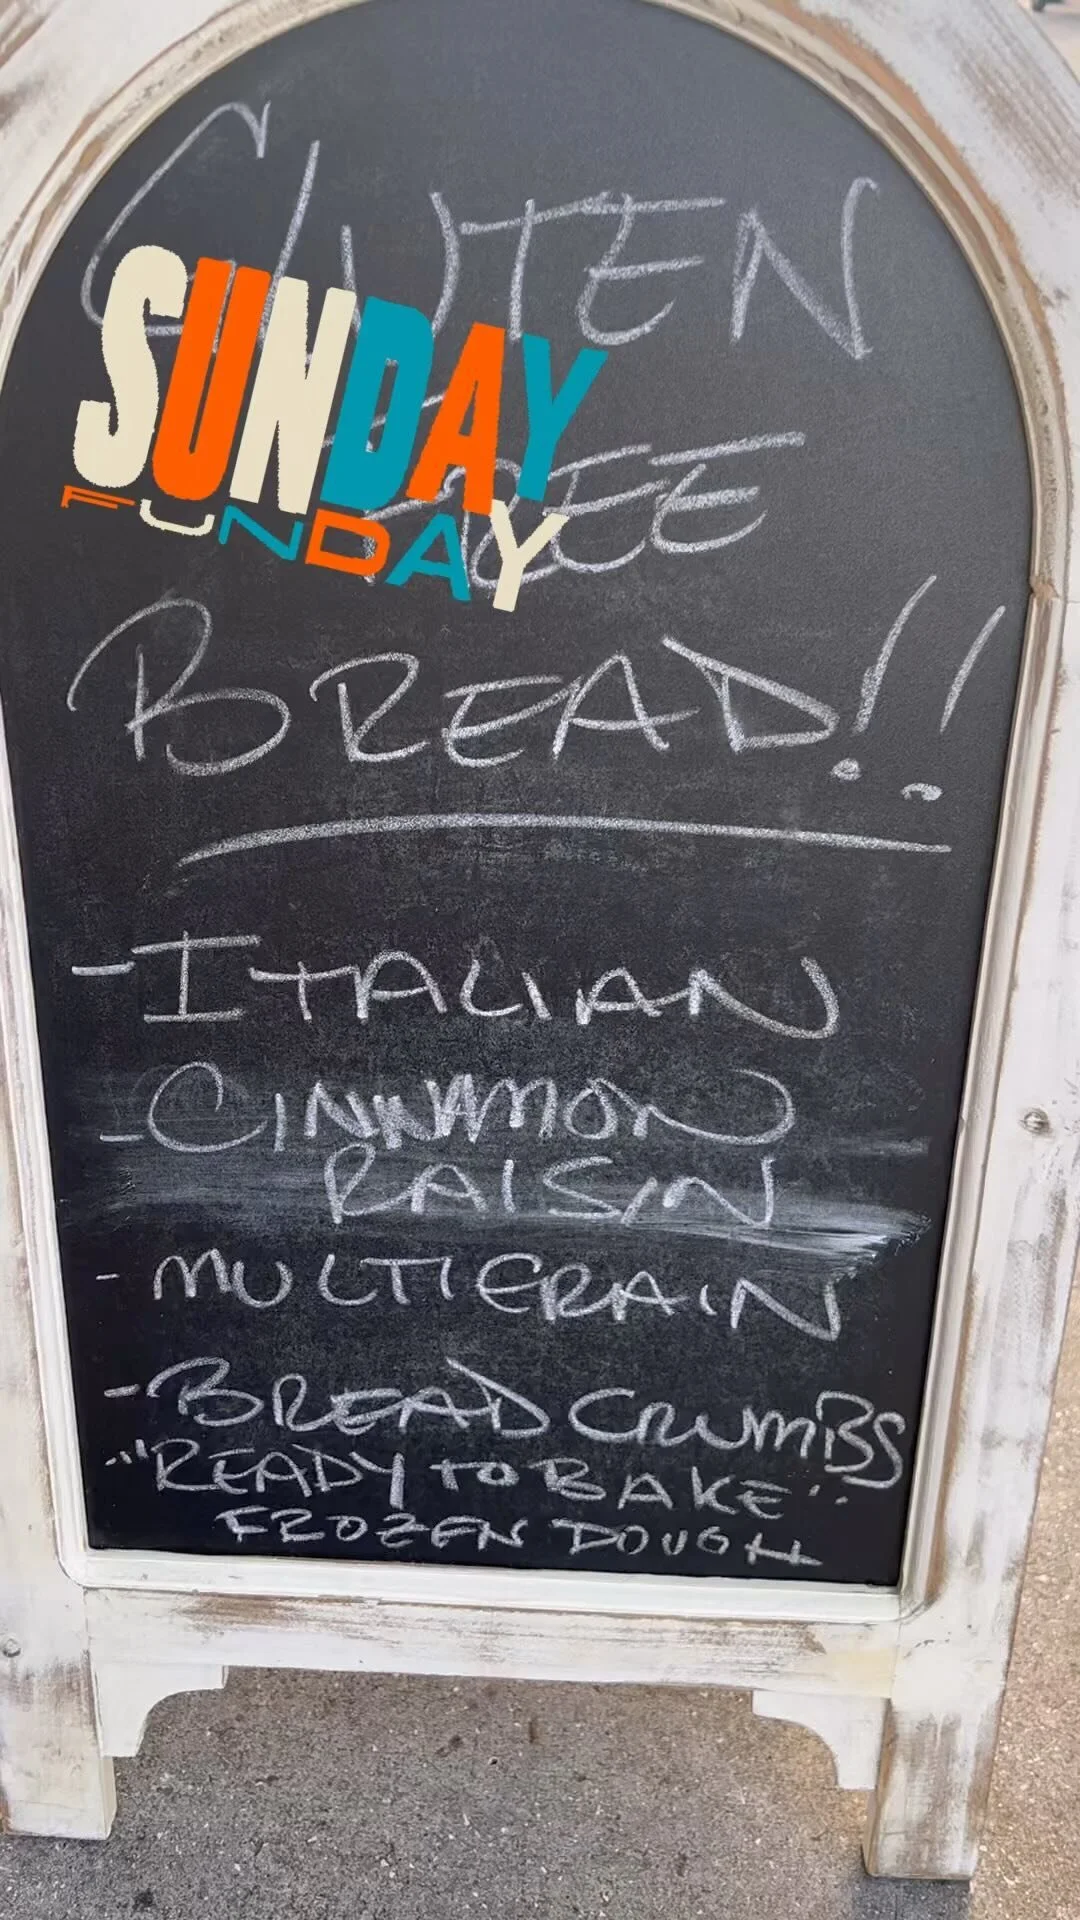 GLUTEN
SUNDAY
FUNDAY
FREE
BREAD!!
- ITALIAN
- CINNAMON
RAISIN
- MULTIGRAIN
- BREAD CRUMBS
- "READY TO BAKE"
FROZEN DOUGH